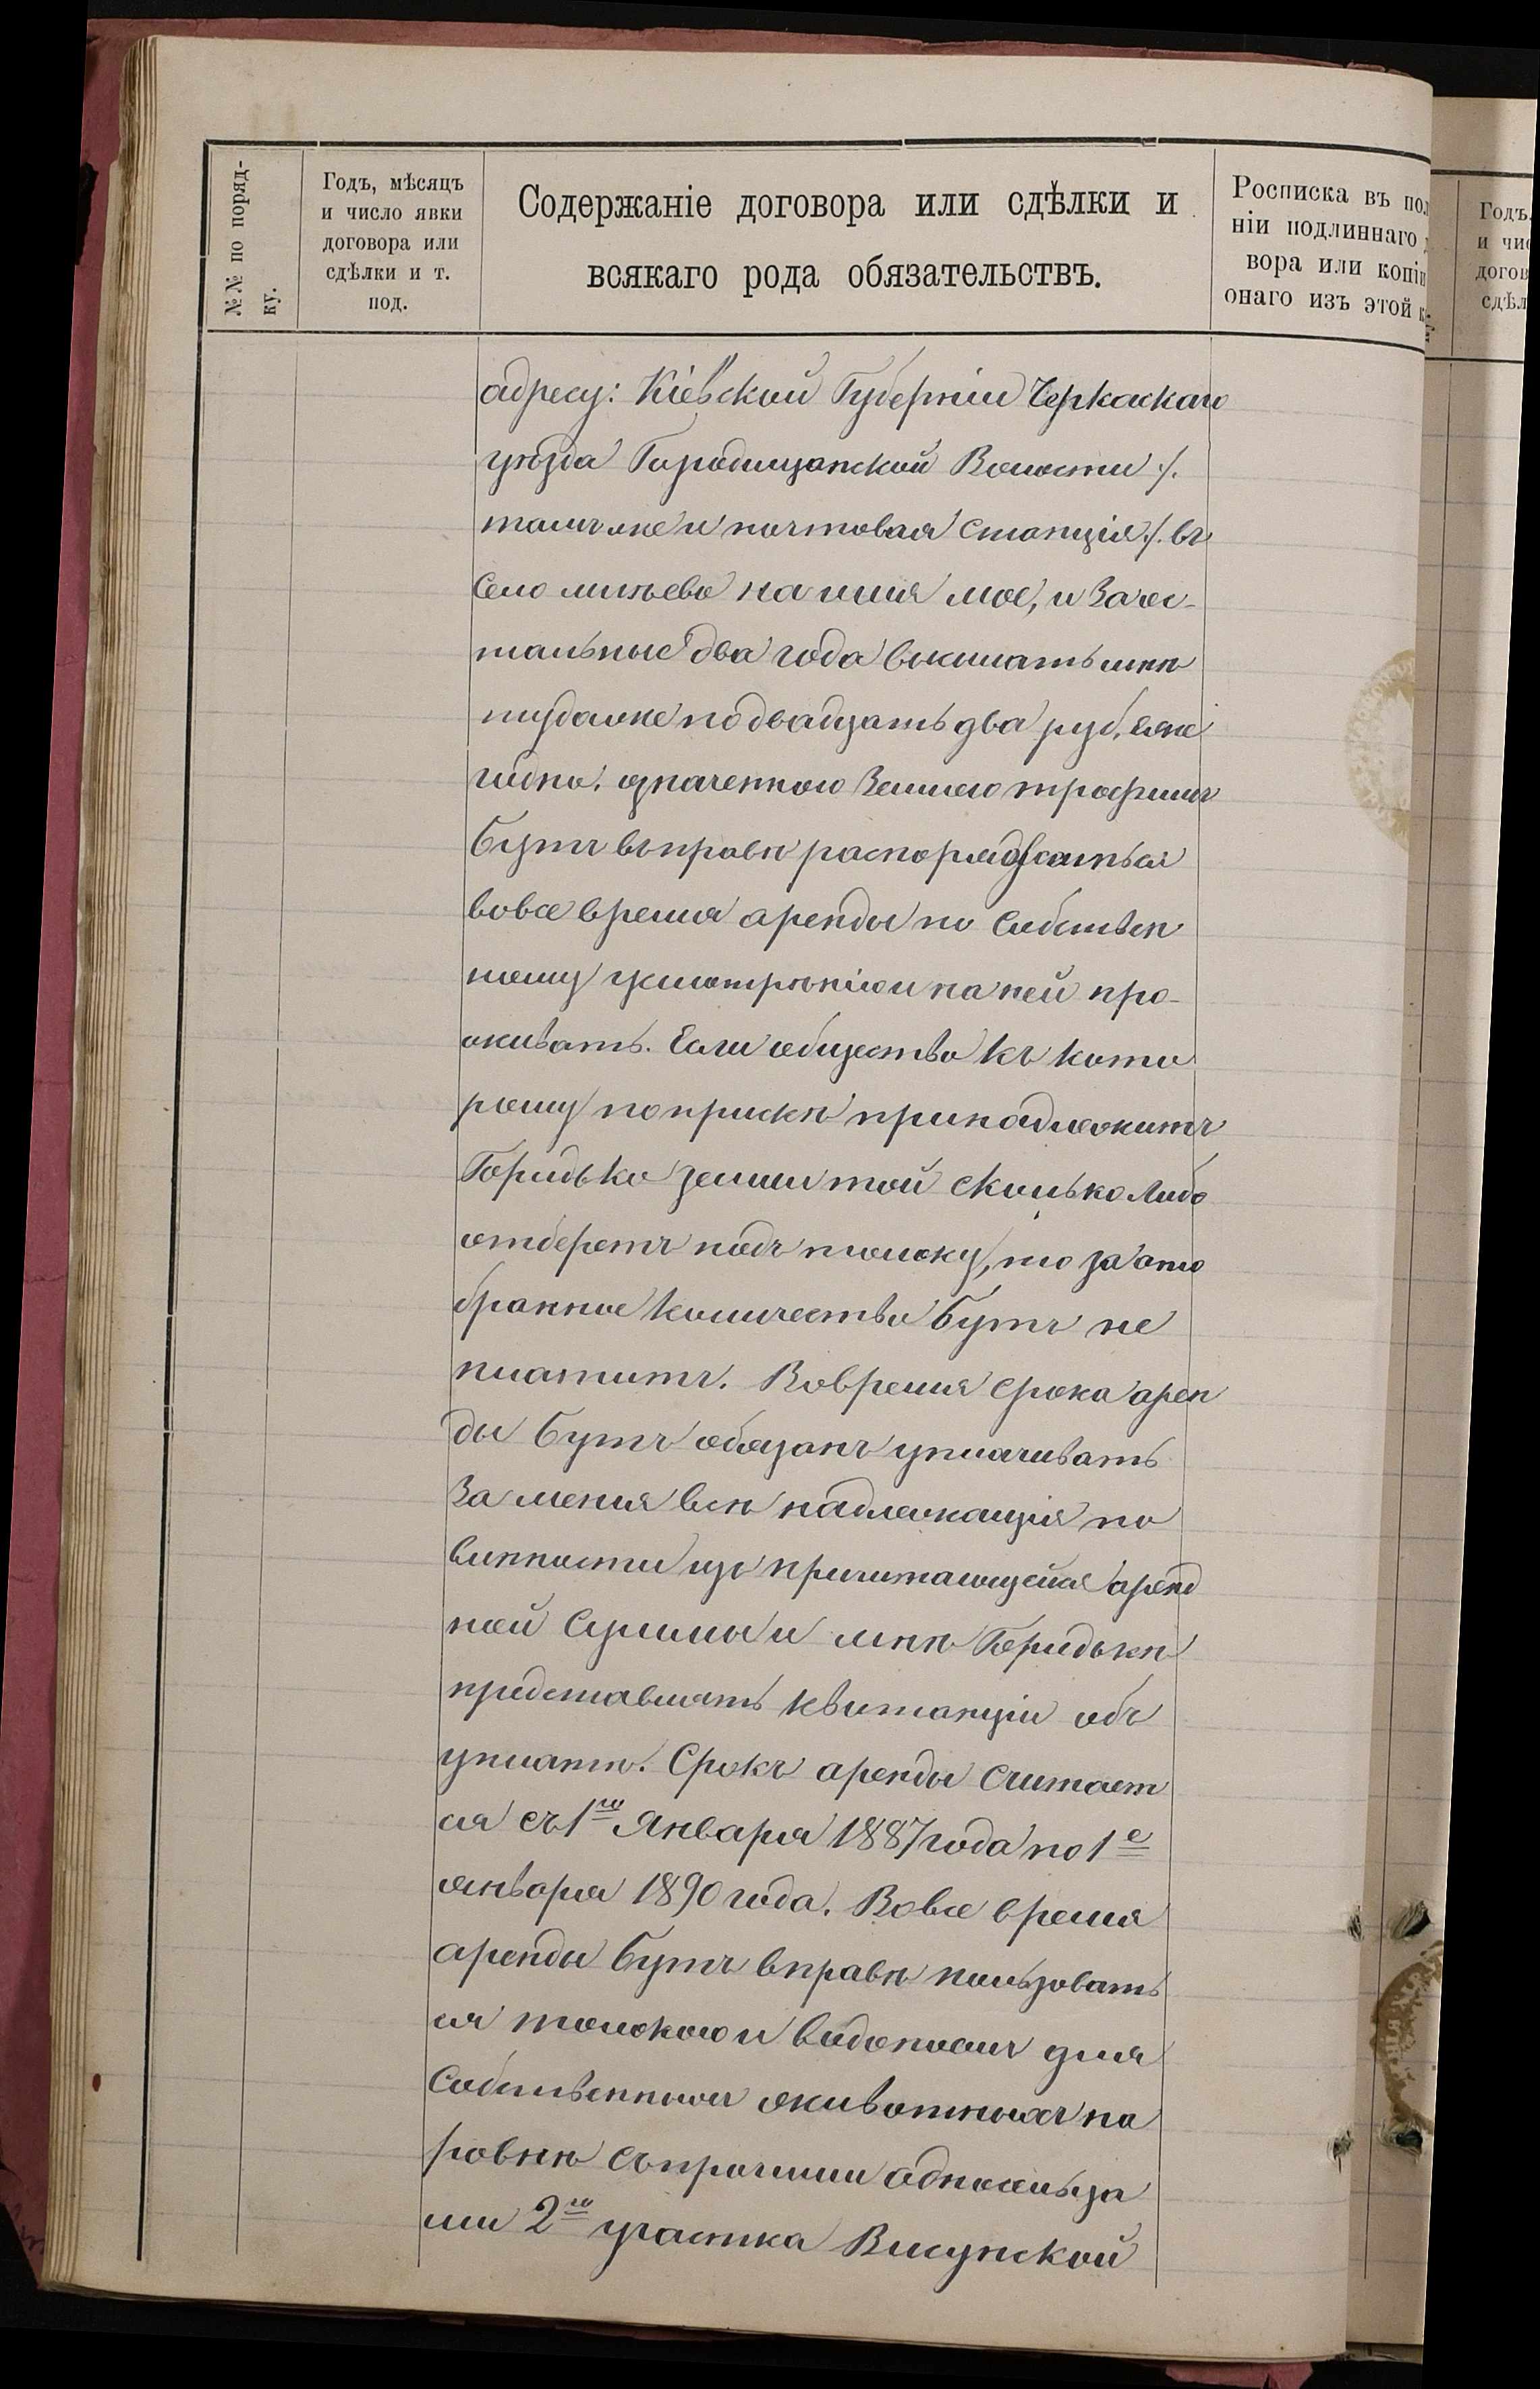 №№ по поряд-
ку.
Годъ, мѣсяцъ
и число явки
договора или
сдѣлки и т.
под.
Содержаніе договора или сдѣлки и
всякаго рода обязательствъ.
Росписка въ пол
ніи подлиннаго д
вора или копіи
онаго изъ этой к
Годъ,
и чис
догов
сдѣл
адресу: Кіевской Губерніи Черкаскаго
уѣзда Городищанской Волости ./.
тамъ же и почтовая станція ./. въ
село млѣево на имя мое, и за ос-
тальные два года высилать мнѣ
туда же по двадцать два руб. еже
годно. означенною землею трофимъ
Бутъ въ правѣ распоряджаться
во все время аренды по собствен
ному усмотрѣнію и на ней про-
живать. Если общество къ кото
рому по припискѣ принадлежитъ
Горидько земли той сколько либо
отберетъ подъ толоку, то за ото
бранное количество Бутъ не
платитъ. Во время срока арен
ды Бутъ обязанъ уплачивать
за меня всѣ надлежащія по
винности изъ причитающейся аренд
ной суммы и мнѣ Горидькѣ
представлять квитанціи объ
уплатѣ. Срокъ аренды считает
ся съ 1го Января 1887 года по 1е
января 1890 года. Во все время
аренды Бутъ вправѣ пользовать
ся толокою и водопоемъ для
собственныхъ животныхъ на
ровнѣ съ прочими односельца
ми 2го участка Висунской